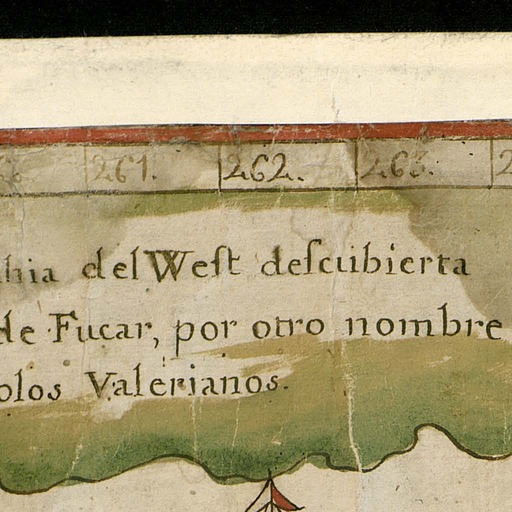 261. 262. 263.
del West descubierta
de Fucar, por otro nombre
Valerianos.